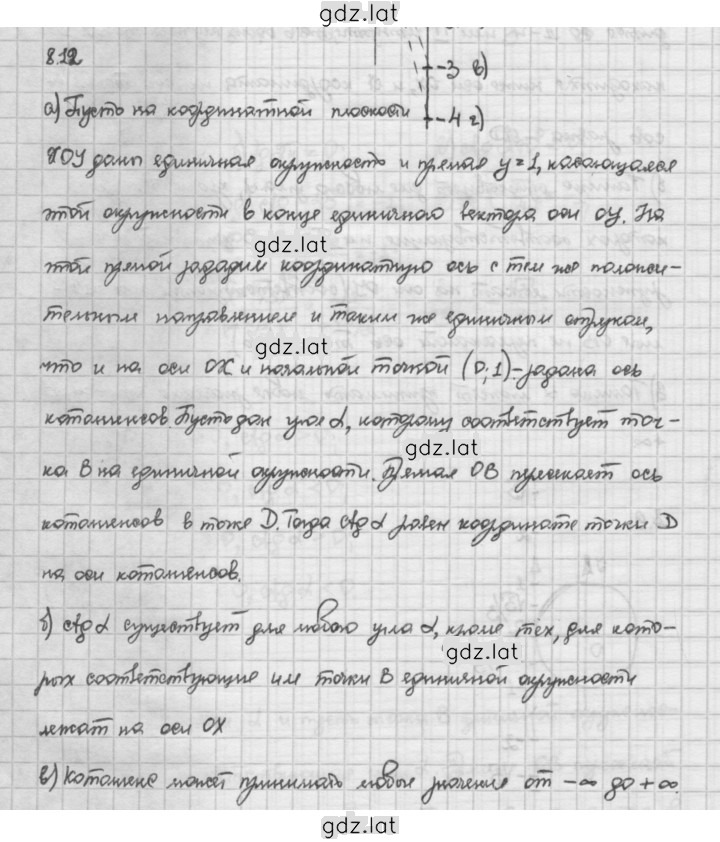 gdz.lat
8.12
-3 в)
-4 г)
а) Пусть на координатной плоскости
XOY даны единичная окружность и прямая y=1, касающаяся
этой окружности в конце единичного вектора оси OY. На
gdz.lat
этой прямой зададим координатную ось с тем же положи-
тельным направлением и таким же единичным отрезком,
gdz.lat
что и на оси OX и начальной точкой (0;1)-задана ось
котангенсов. Пусть дан угол α, которому соответствует точ-
gdz.lat
ка B на единичной окружности. Прямая OB пересекает ось
котангенсов в точке D. Тогда ctg α равен координате точки D
на оси котангенсов.
б) ctg α существует для любого угла α, кроме тех, для кото-
gdz.lat
рых соответствующие им точки B единичной окружности
лежат на оси OX
в) Котангенс может принимать любые значение от -∞ до +∞.
gdz.lat